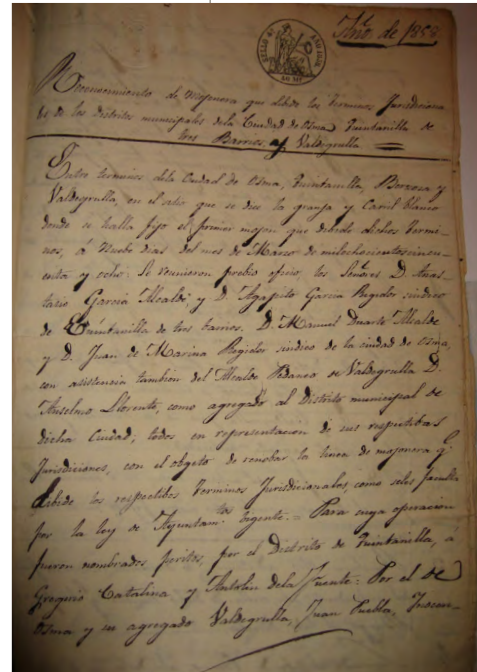 Año de 1858
SELLO 4º AÑO 1858
40 Mˢ
Reconocimiento de Mojonera que dibide los terminos Jurisdiciona
les de los distritos municipales de la Ciudad de Osma Quintanilla de
tres Barrios, y Valdegrulla =
Entre terminos de la Ciudad de Osma, Quintanilla, Berzosa y
Valdegrulla, en el sitio que se dice la granja y Carril blanco
donde se halla fijo el primer mojon que dibide dichos termi-
nos, á Nuebe dias del mes de Marzo de mil ochocientos cincu-
enta y ocho: Se reunieron prebio oficio, los Señores D. Anas-
tasio Garcia Alcalde, y D. Agapito Garcia Regidor sindico
de Quintanilla de tres barrios. D. Manuel Duarte Alcalde
y D. Juan de Marina Regidor sindico de la ciudad de Osma,
con asistencia tambien del Alcalde Pedaneo de Valdegrulla D.
Anselmo Llorente, como agregado al Distrito municipal de
dicha Ciudad; todos en representacion de sus respectibas
Jurisdiciones, con el objeto de renobar la linea de mojonera q.
dibide los respectibos terminos Jurisdicionales, como seles faculta
por la ley de Ayuntam.tos bigente. = Para cuya operacion
fueron nombrados peritos, por el Distrito de Quintanilla, á
Gregorio Catalina y Antolin de la Fuente: Por el de
Osma y su agregado Valdegrulla, Juan Puebla, Inocen-